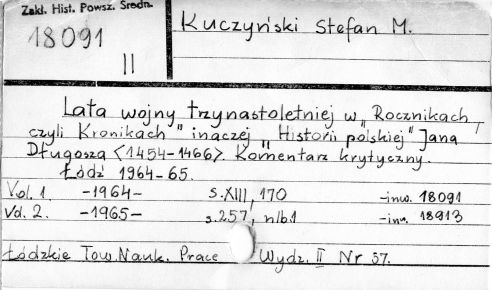 Zakł. Hist. Powsz. Średn.
18091
II
Kuczyński Stefan M.
Lata wojny trzynastoletniej w „Rocznikach,
czyli Kronikach" inaczej „Historii polskiej" Jana
Długosza <1454-1466>. Komentarz krytyczny.
Łódź 1964-65.
Vol. 1. -1964- s. XIII, 170 -inw. 18091
Vol. 2. -1965- s. 257, nlb.1 -inw. 18913
Łódzkie Tow. Nauk. Prace Wydz. II Nr 57.